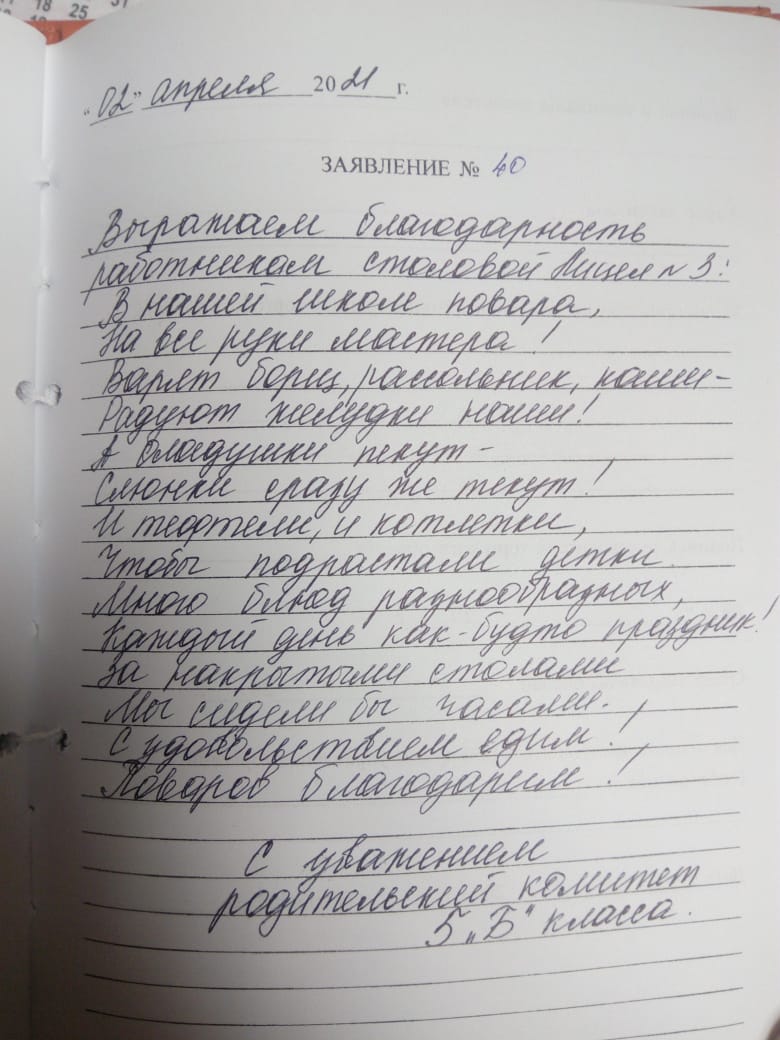 18
25
"02" апреля 2021 г.
ЗАЯВЛЕНИЕ № 40
Выражаем благодарность
работникам столовой Лицея №3:
В нашей школе повара,
На все руки мастера!
Варят борщ, рассольник, каши-
Радуют желудки наши!
А оладушки пекут-
Слюнки сразу же текут!
И тефтели, и котлетки,
Чтобы подрастали детки.
Много блюд разнообразных,
Каждый день как-будто праздник!
За накрытыми столами
Мы сидели бы часами.
С удовольствием едим!
Поваров благодарим!
С уважением
родительский комитет
5 „Б" класса.